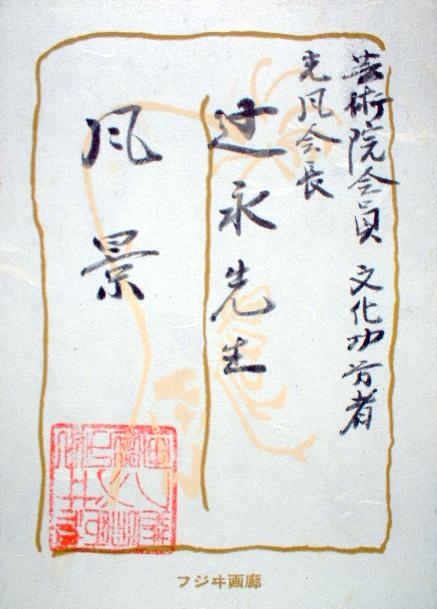 芸術院会員 文化功労者
光風会長
辻永先生
風景
フジヰ画廊